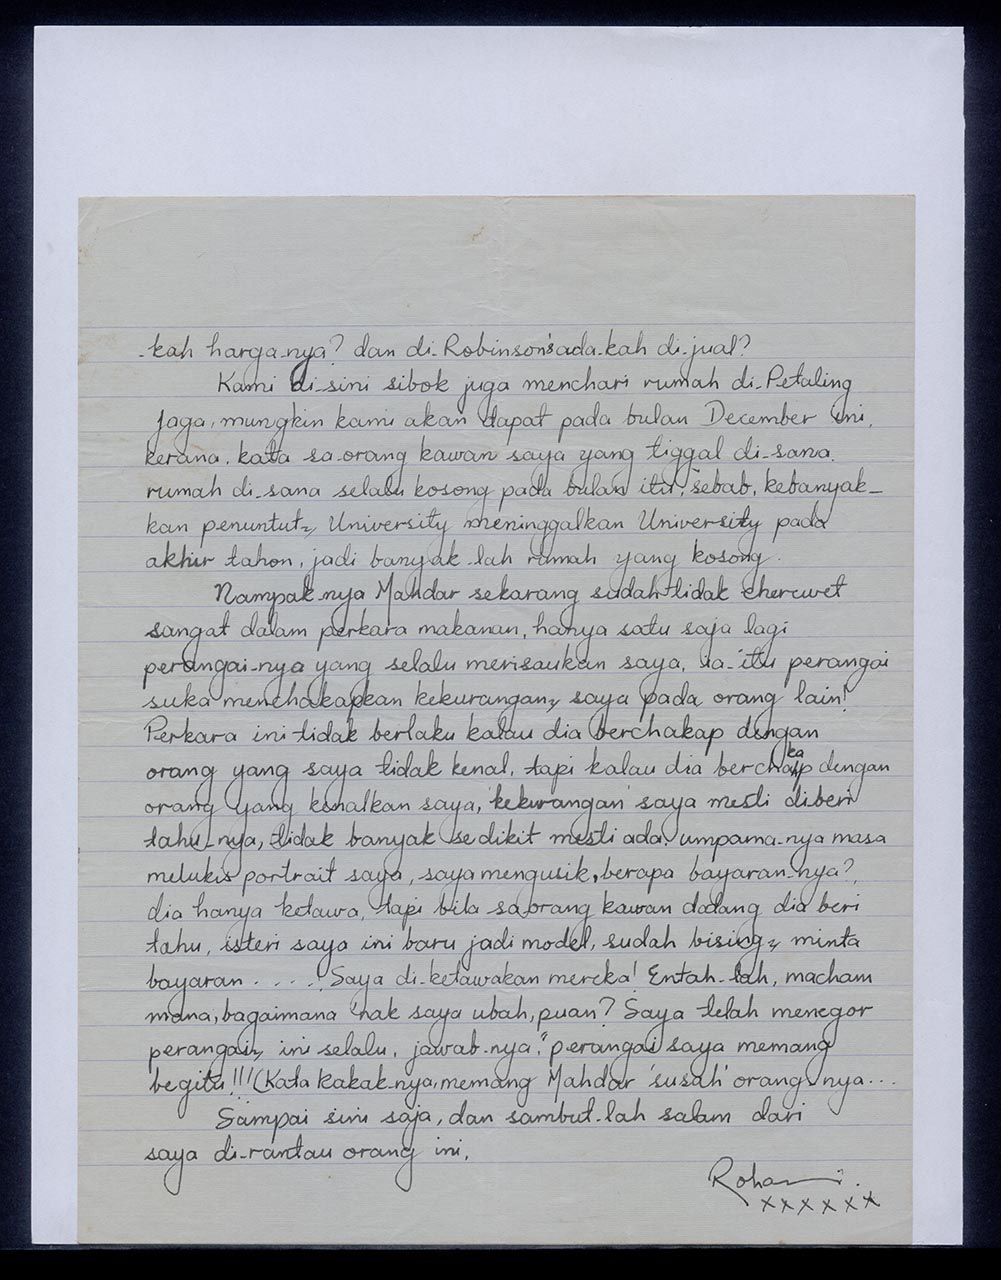 -kah harga-nya? dan di-Robinson's ada-kah di-jual?
Kami di-sini sibok juga menchari rumah di-Petaling
Jaga, mungkin kami akan dapat pada bulan December ini,
kerana, kata sa-orang kawan saya yang tiggal di-sana,
rumah di-sana selalu kosong pada bulan itu, sebab, kebanyak-
kan penuntut2, University meninggalkan University pada
akhir tahon, jadi banyak-lah rumah yang kosong.
Nampak-nya Mahdar sekarang sudah tidak cherewet
sangat dalam perkara makanan, hanya satu saja lagi
perangai-nya yang selalu merisaukan saya, ia-itu perangai
suka menchakapkan kekurangan2 saya pada orang lain!
Perkara ini tidak berlaku kalau dia berchakap dengan
orang yang saya tidak kenal, tapi kalau dia berchakap dengan
orang yang kenalkan saya, 'kekurangan' saya mesti diberi
tahu-nya, tidak banyak sedikit mesti ada, umpama-nya masa
melukis portrait saya, saya mengusik, berapa bayaran-nya?,
dia hanya ketawa, tapi bila sa-orang kawan datang dia beri
tahu, isteri saya ini baru jadi model, sudah bising2 minta
bayaran . . . . ! Saya di-ketawakan mereka! Entah-lah, macham
mana, bagaimana 'nak saya ubah, puan? Saya telah menegor
perangai2 ini selalu, jawab-nya, "perangai saya memang
begitu!!! (Kata kakak-nya, memang Mahdar 'susah' orang-nya...
Sampai sini saja, dan sambut-lah salam dari
saya di-rantau orang ini,
Rohani.
xxxxxx